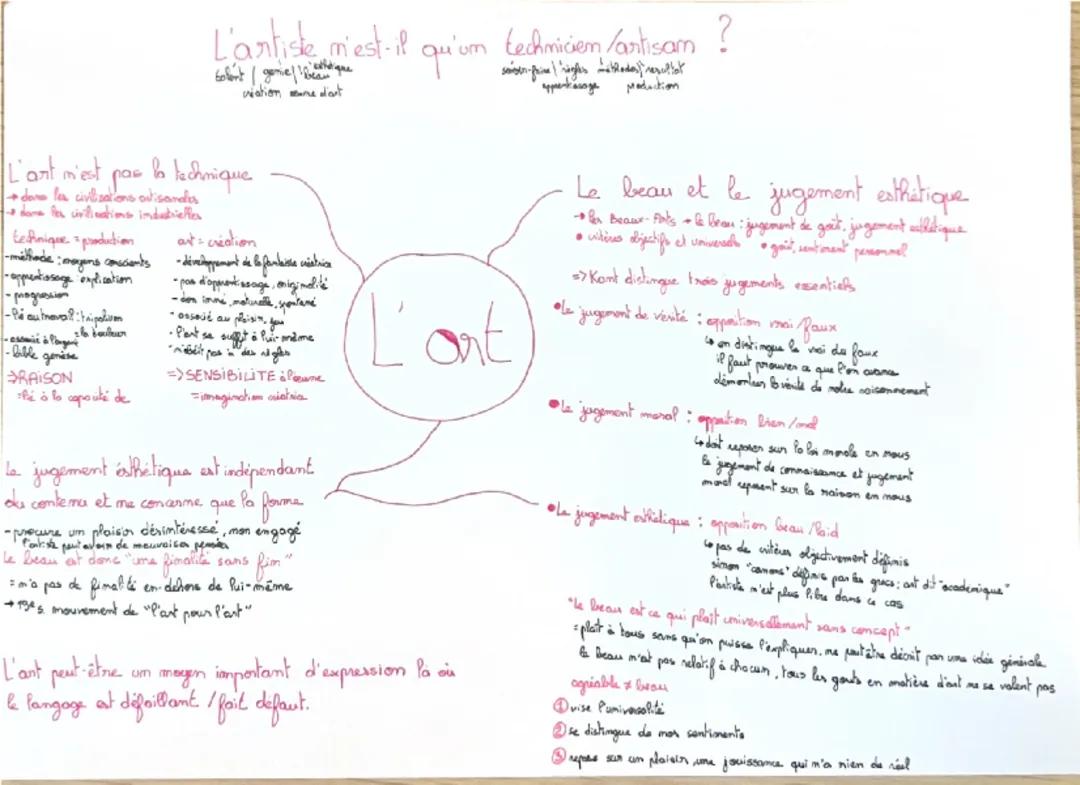 L'artiste n'est-il qu'un technicien/artisan ?
talent / génie / beau esthétique
création œuvre d'art
savoir-faire / règles méthodes / résultat
apprentissage production
L'art n'est pas la technique
→ dans les civilisations artisanales
→ dans les civilisations industrielles
technique = production
- méthode : moyens conscients
- apprentissage explication
- progression
- lié au travail : tripalium
= la douleur
- associé à l'argent
- faible genèse
⇒ RAISON
= lié à la capacité de
art = création
- développement de la fantaisie créatrice
- pas d'apprentissage, originalité
- don inné, naturelle, spontané
- associé au plaisir, jeu
- l'art se suffit à lui-même
n'obéit pas à des règles
=> SENSIBILITE à l'œuvre
= imagination créatrice
L'art
Le jugement esthétique est indépendant
du contenu et ne concerne que la forme
- procure un plaisir désintéressé, non engagé
l'artiste peut avoir de mauvaises pensées
Le beau est donc "une finalité sans fin"
= n'a pas de finalité en-dehors de lui-même
→ 19e s. mouvement de "l'art pour l'art"
L'art peut-être un moyen important d'expression là où
le langage est défaillant / fait défaut.
Le beau et le jugement esthétique
→ les Beaux-Arts → le beau : jugement de goût, jugement esthétique
• critères objectifs et universels • goût, sentiment personnel
=> Kant distingue trois jugements essentiels
• Le jugement de vérité : opposition vrai/faux
↳ on distingue le vrai du faux
il faut prouver ce que l'on avance
démontrer la vérité de notre raisonnement
• Le jugement moral : opposition bien/mal
↳ doit reposer sur la loi morale en nous
le jugement de connaissance et jugement
moral reposent sur la raison en nous
• Le jugement esthétique : opposition beau/laid
↳ pas de critères objectivement définis
sinon "canons" définis par les grecs : art dit "académique"
l'artiste n'est plus libre dans ce cas
"Le beau est ce qui plaît universellement sans concept"
= plaît à tous sans qu'on puisse l'expliquer, ne peut être décrit par une idée générale
le beau n'est pas relatif à chacun, tous les goûts en matière d'art ne se valent pas
agréable ≠ beau
① vise l'universalité
② se distingue de mes sentiments
③ repose sur un plaisir, une jouissance qui n'a rien de réel